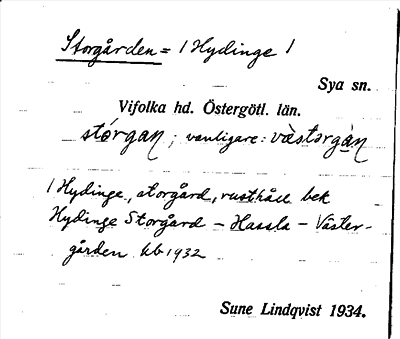 Storgården = / Hydinge /
Sya sn.
Vifolka hd. Östergötl. län.
stórgaɳ ; vanligare: vàstərgàɳ
/ Hydinge, storgård, rusthåll bek
Hydinge Storgård – Hassla – Väster-
gården kb 1932
Sune Lindqvist 1934.